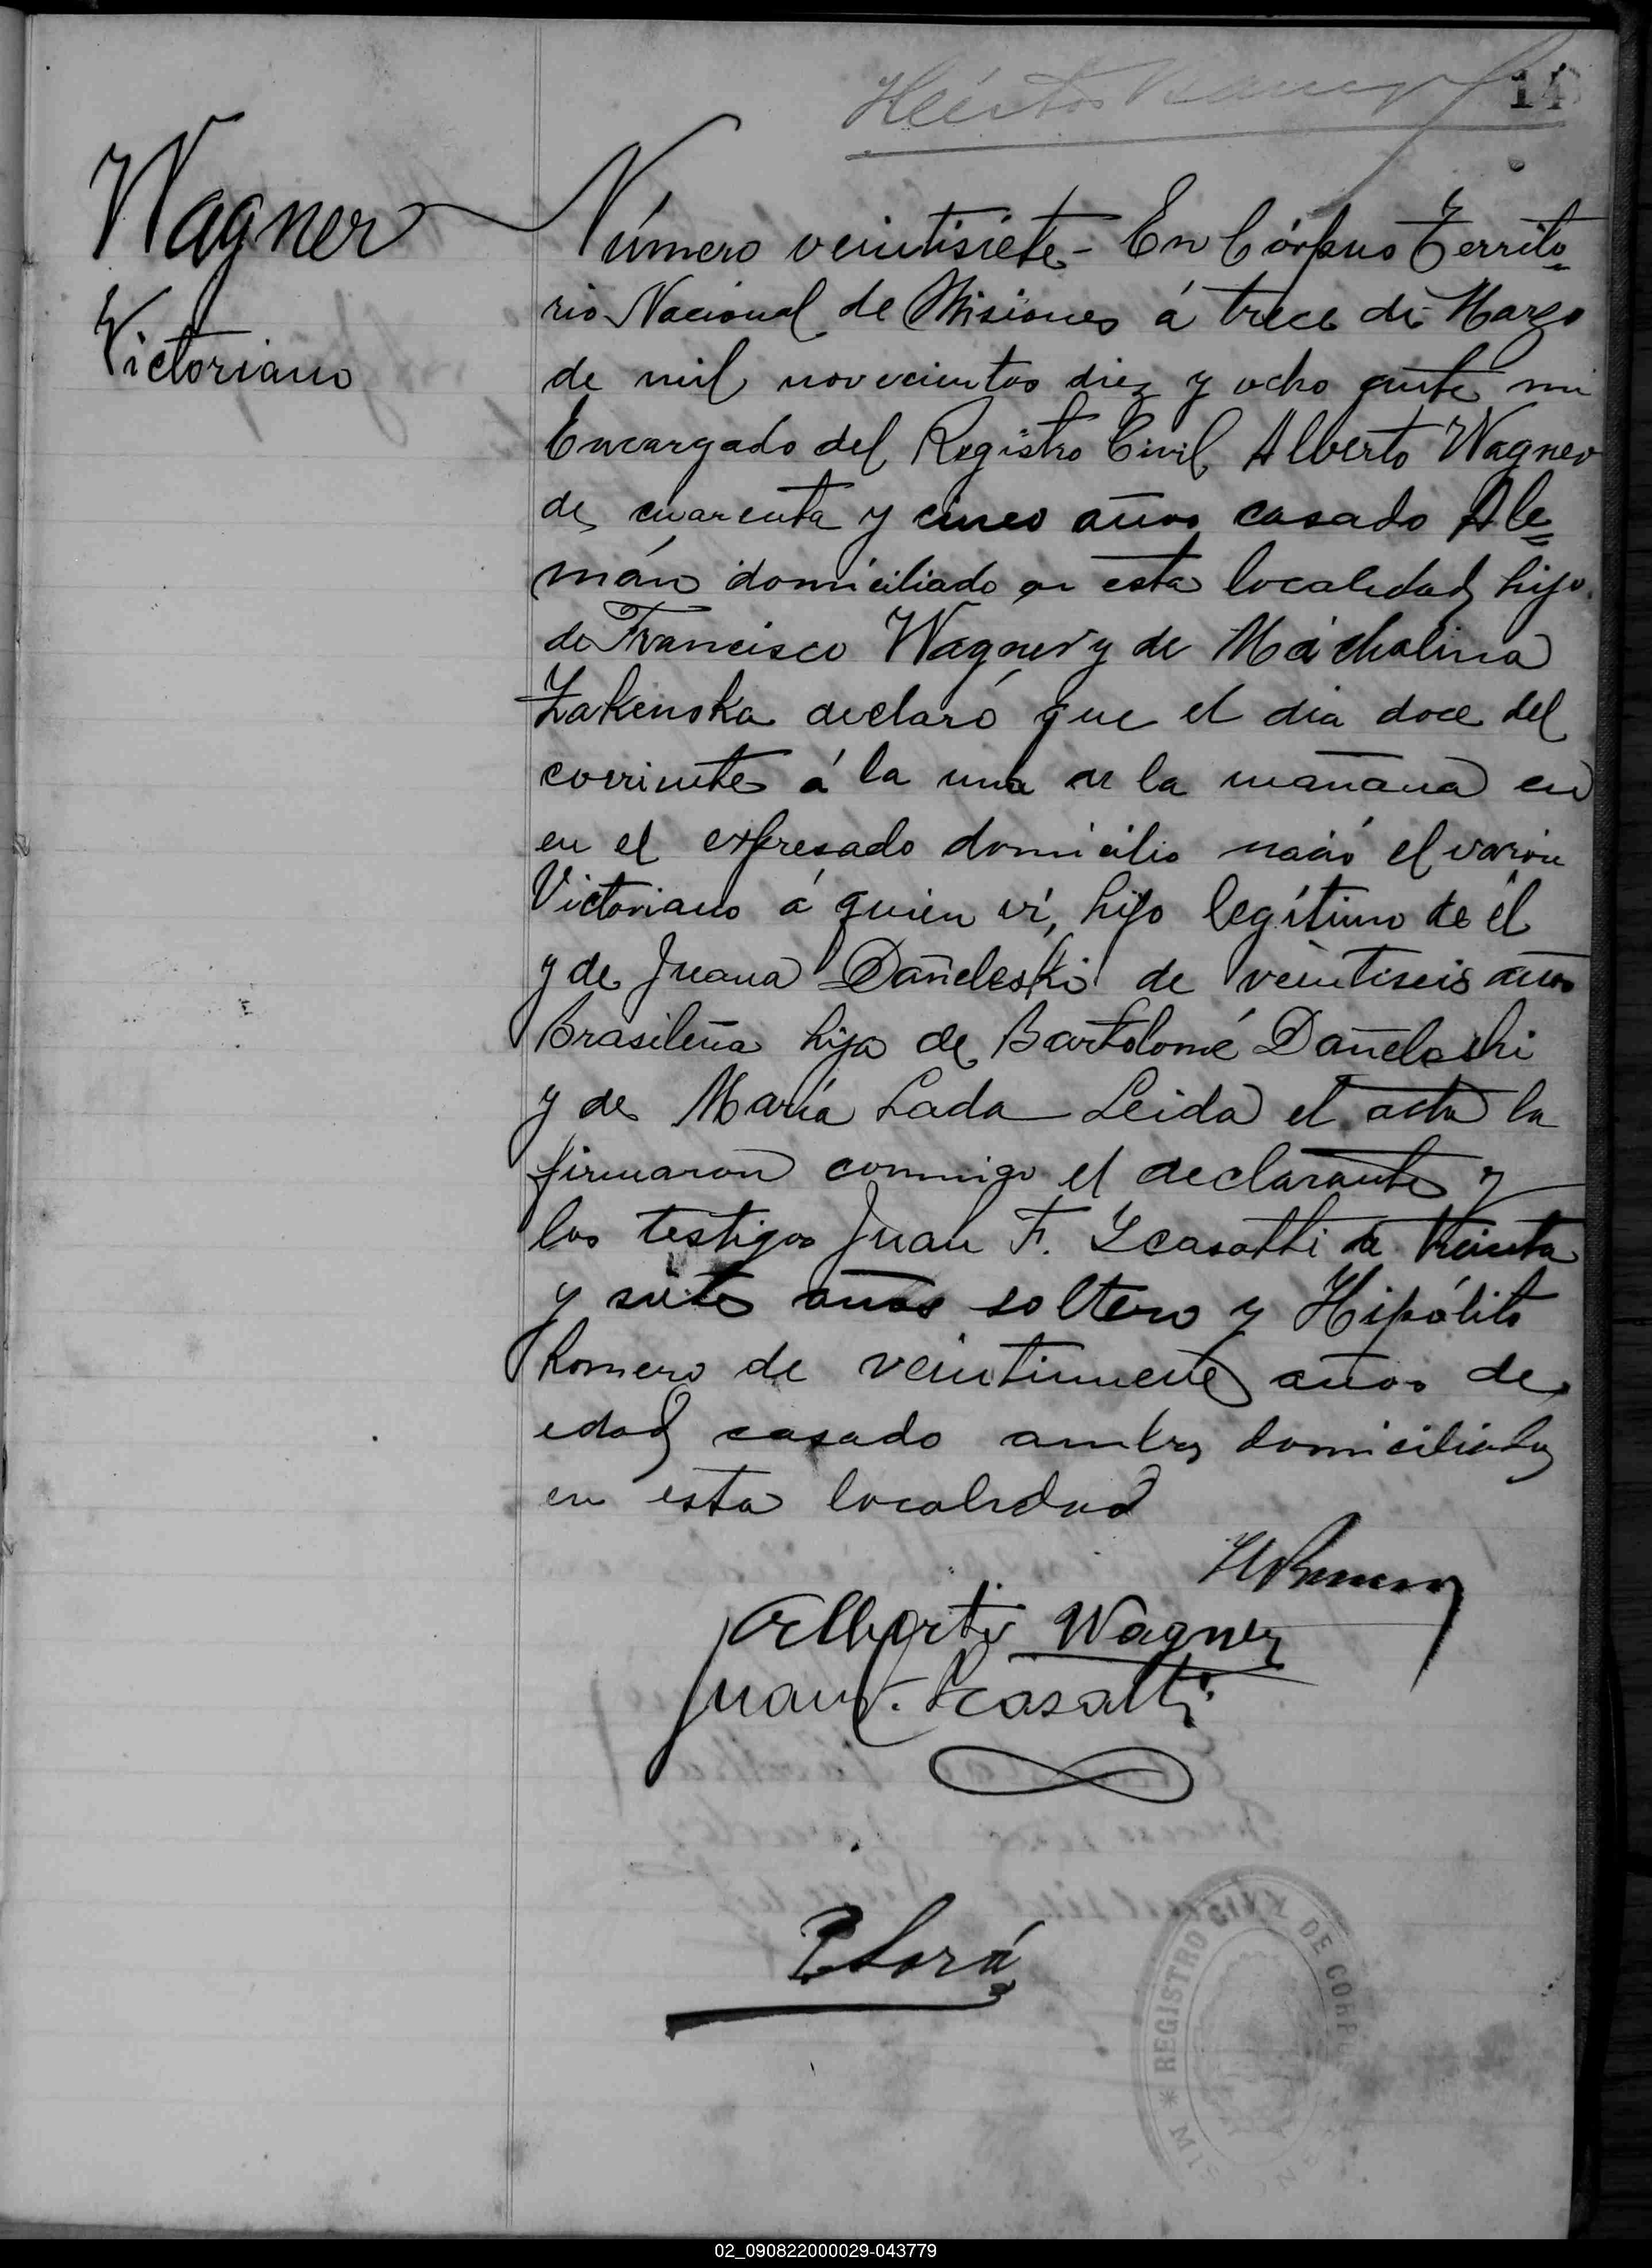 14
Wagner
Victoriano
Número veintisiete - En Córpus Territo=
rio Nacional de Misiones á trece de Marzo
de mil novecientos diez y ocho ante mi
Encargado del Registro Civil Alberto Wagner
de cuarenta y cinco años casado Ale=
mán domiciliado en esta localidad hijo
de Francisco Wagner y de Máchalina
Zakenska declaró que el dia doce del
corriente á la una de la mañana en
en el expresado domicilio nació el varón
Victoriano á quien ví, hijo legítimo de él
y de Juana Dañeleski de veintiseis años
Brasileña hija de Bartolomé Dañeleski
y de María Lada Leida el acta la
firmaron conmigo el declarante y
los testigos Juan F. Lcasatti de treinta
y siete años soltero y Hipólito
Romero de veintinueve años de
edad casado ambos domiciliados
en esta localidad
HRomero
Alberto Wagner
Juan F. Lcasatti
* REGISTRO CIVIL DE CORPUS
02_090822000029-043779